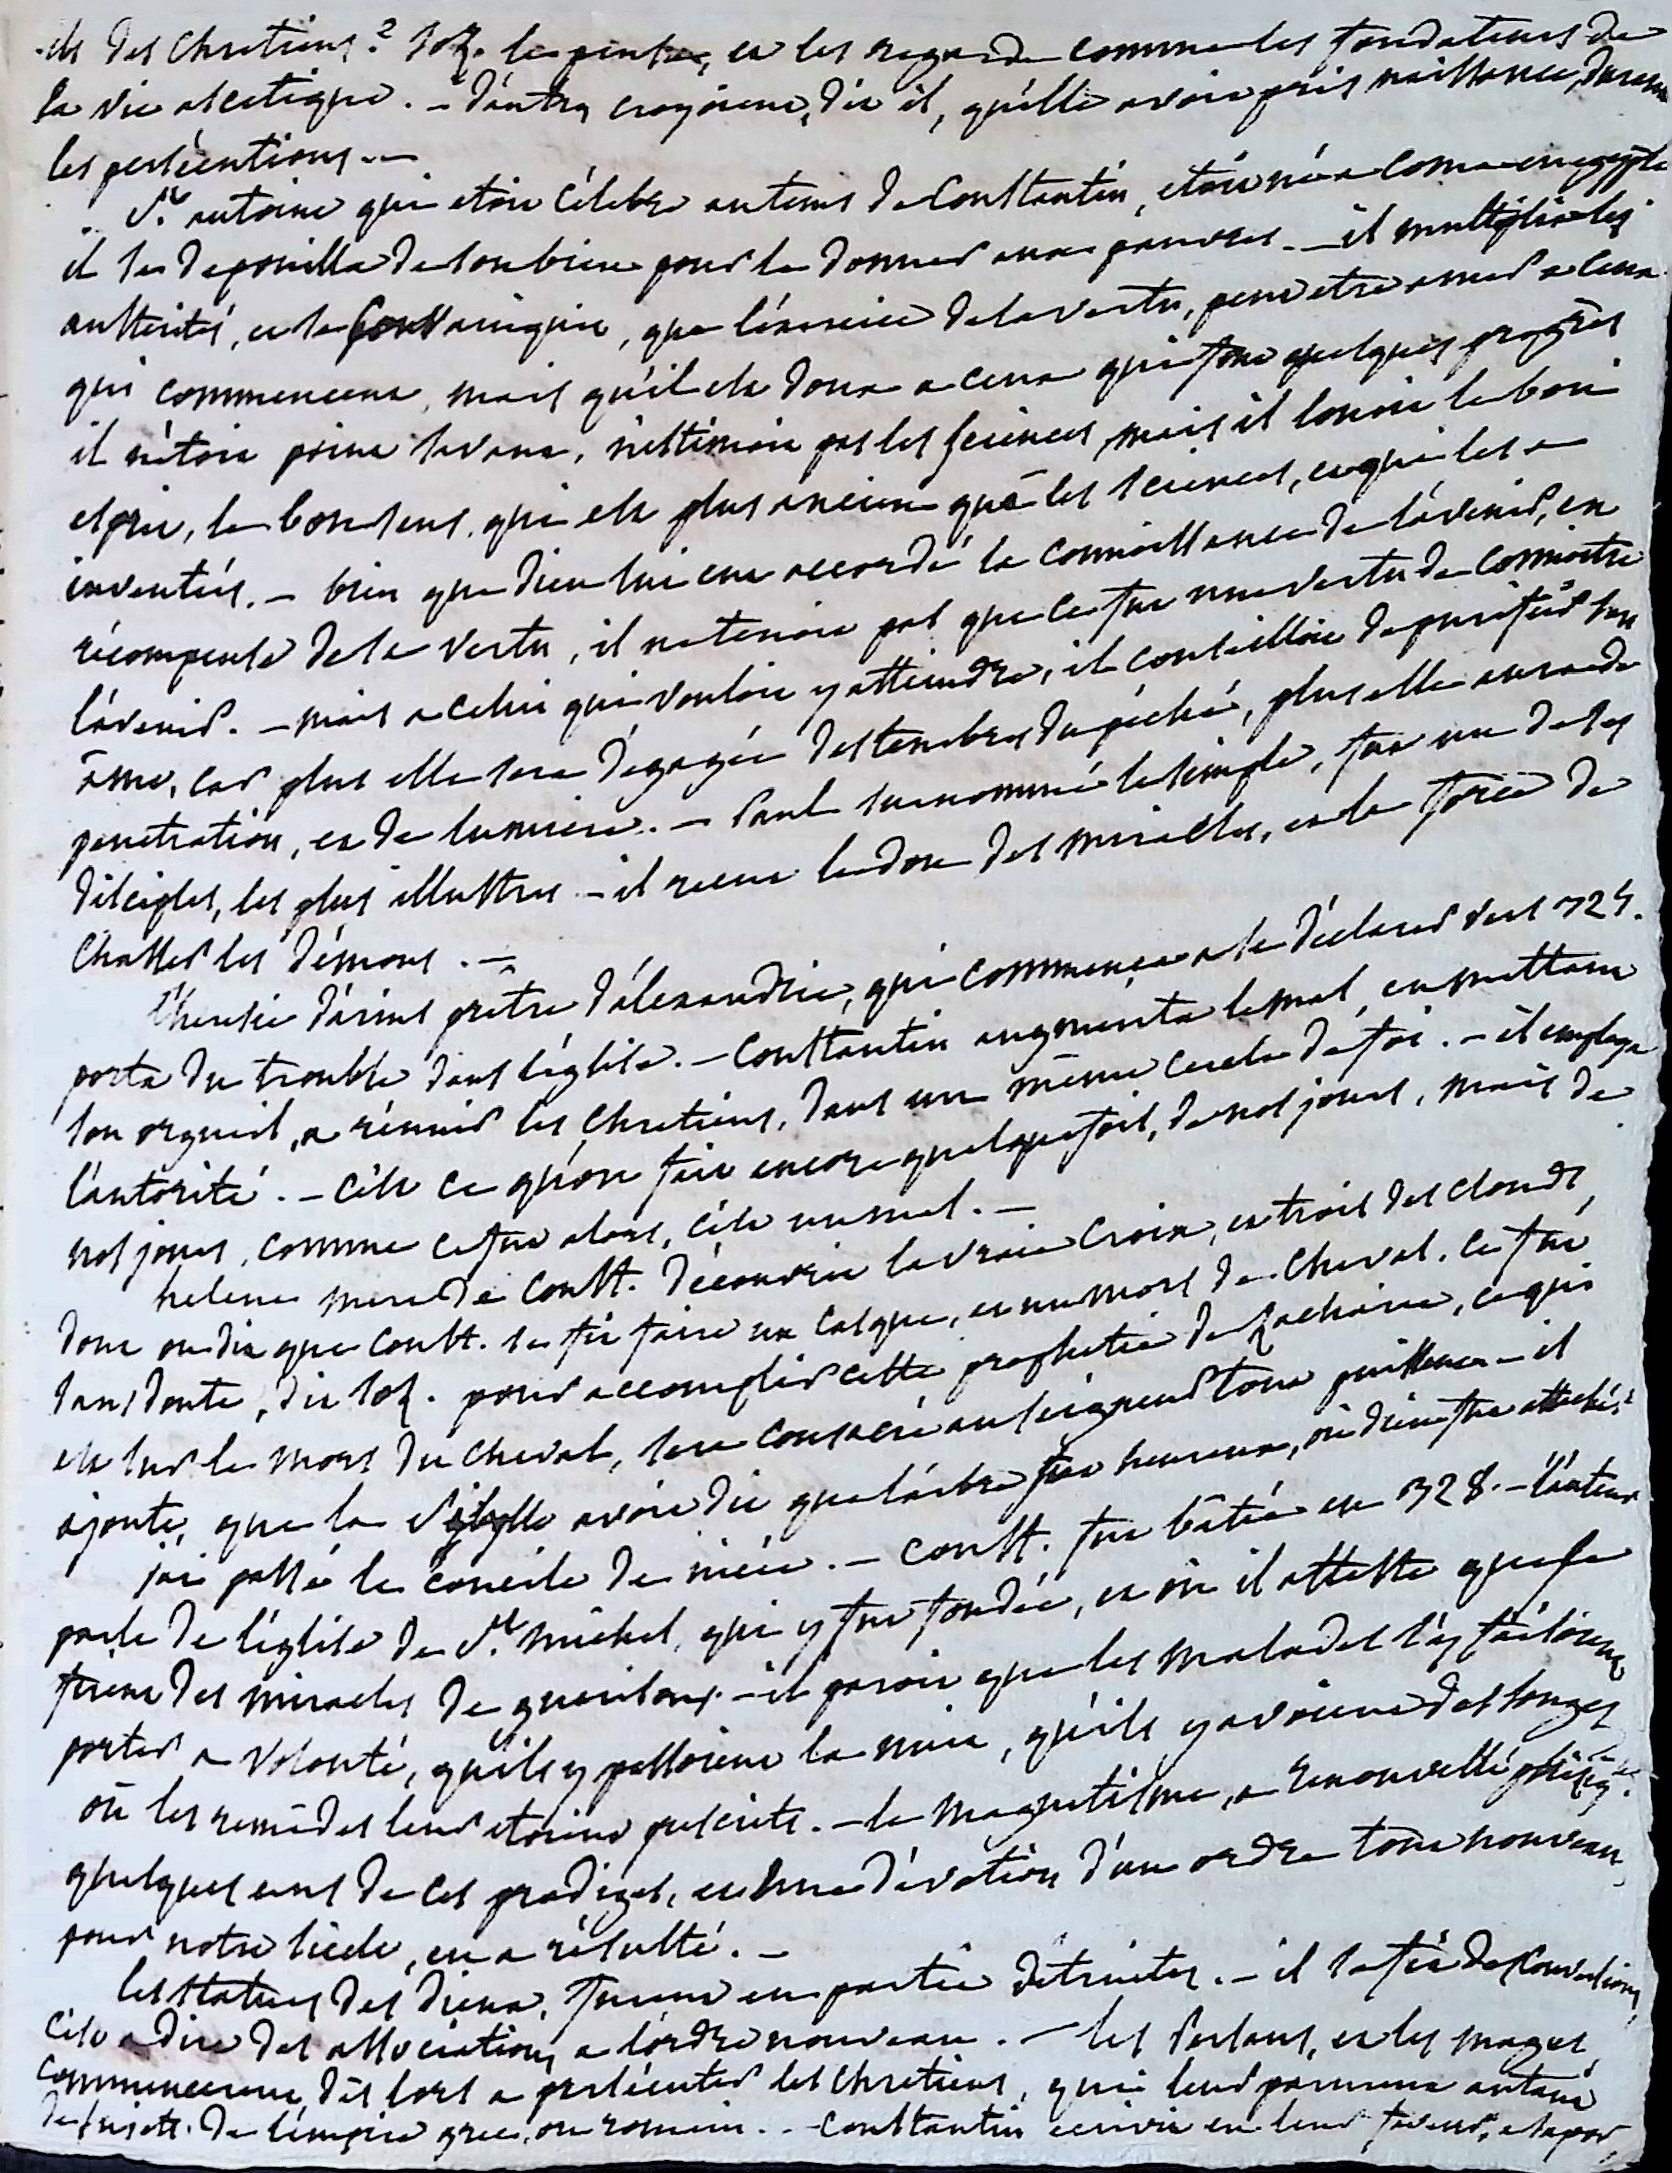 -ils des chretiens? Soz. le pense, et les regarde comme les fondateurs de
la vie ascetique. – d'autres croyoient, dit il, qu'elle avoit pris naissance, durant
les persécutions. –
St. antoine qui etoit célebre au tems de Constantin, etoit né a Coma en egypte
il se depouilla de son bien pour le donner aux pauvres. – il multiplia les
austerités, et se convainquit, que l'exercice de la vertu, peut etre amer a ceux
qui commencent, mais qu'il est doux a ceux qui font quelques progrès
il n'étoit point savant, n'estimoit pas les sciences, mais il louoit le bon
esprit, le bon sens, qui est plus ancien que les sciences, et qui les a
inventées. – bien que dieu lui eut accordé la connoissance de l'avenir, en
récompense de sa vertu, il ne tenoit pas que ce fut une vertu de connoitre
l'avenir. – mais a celui qui vouloit y atteindre, il conseilloit de purifier son
âme, car plus elle sera dégagée des tenebres du péché, plus elle aura de
penetration, et de lumiere. – Paul surnommé le simple, fut un de ses
disciples, les plus illustres – il recut le don des miracles, et la force de
chasser les démons. –
l'heresie d'arius prêtre d'alexandrie, qui commença a se déclarer vers 324.
porta du trouble dans l'église. – Constantin augmenta le mal, en mettant
son orgueil, a réunir les chretiens, dans un même cercle de foi. – il employa
l'autorité. – c'est ce qu'on fait encore quelquefois, de nos jours, mais de
nos jours, comme ce fut alors, c'est un mal. –
helene mere de Const. découvrit la vraie croix, et trois des clouds,
dont on dit que Const. se fit faire un casque, et un mors de cheval. ce fut
sans doute, dit Soz. pour accomplir cette prophetie de Zacharie, ce qui
est sur le mors du cheval, sera consacré au seigneur tout puissant – il
ajoute, que la Sibylle avoit dit que l'arbre fut heureux, où dieu fut attaché.
j'ai passé le concile de nicée. – Const. fut bâtie en 328. – l'auteur
parle de l'église de St. michel, qui y fut fondée, et où il atteste que se
firent des miracles de guerisons. – il paroit que les malades s'y faisoient
porter a volonté, qu'ils y passoient la nuit, qu'ils y avoient des songes
où les remédes leur etoient prescrits. – le magnetisme, a renouvellé
quelques uns de ces prodiges, et une dévotion d'un ordre tout nouveau,
pour notre siecle, en a résulté. –
les statues des dieux, furent en partie détruites. – il se fit des conversions,
c'est a dire des associations a l'ordre nouveau. – les Persans, et les mages
commencerent, dès lors a persécuter les chretiens, qui leur parurent autant
de sujets de l'empire grec, ou romain. – Constantin ecrivit en leur faveur, a Sapor,